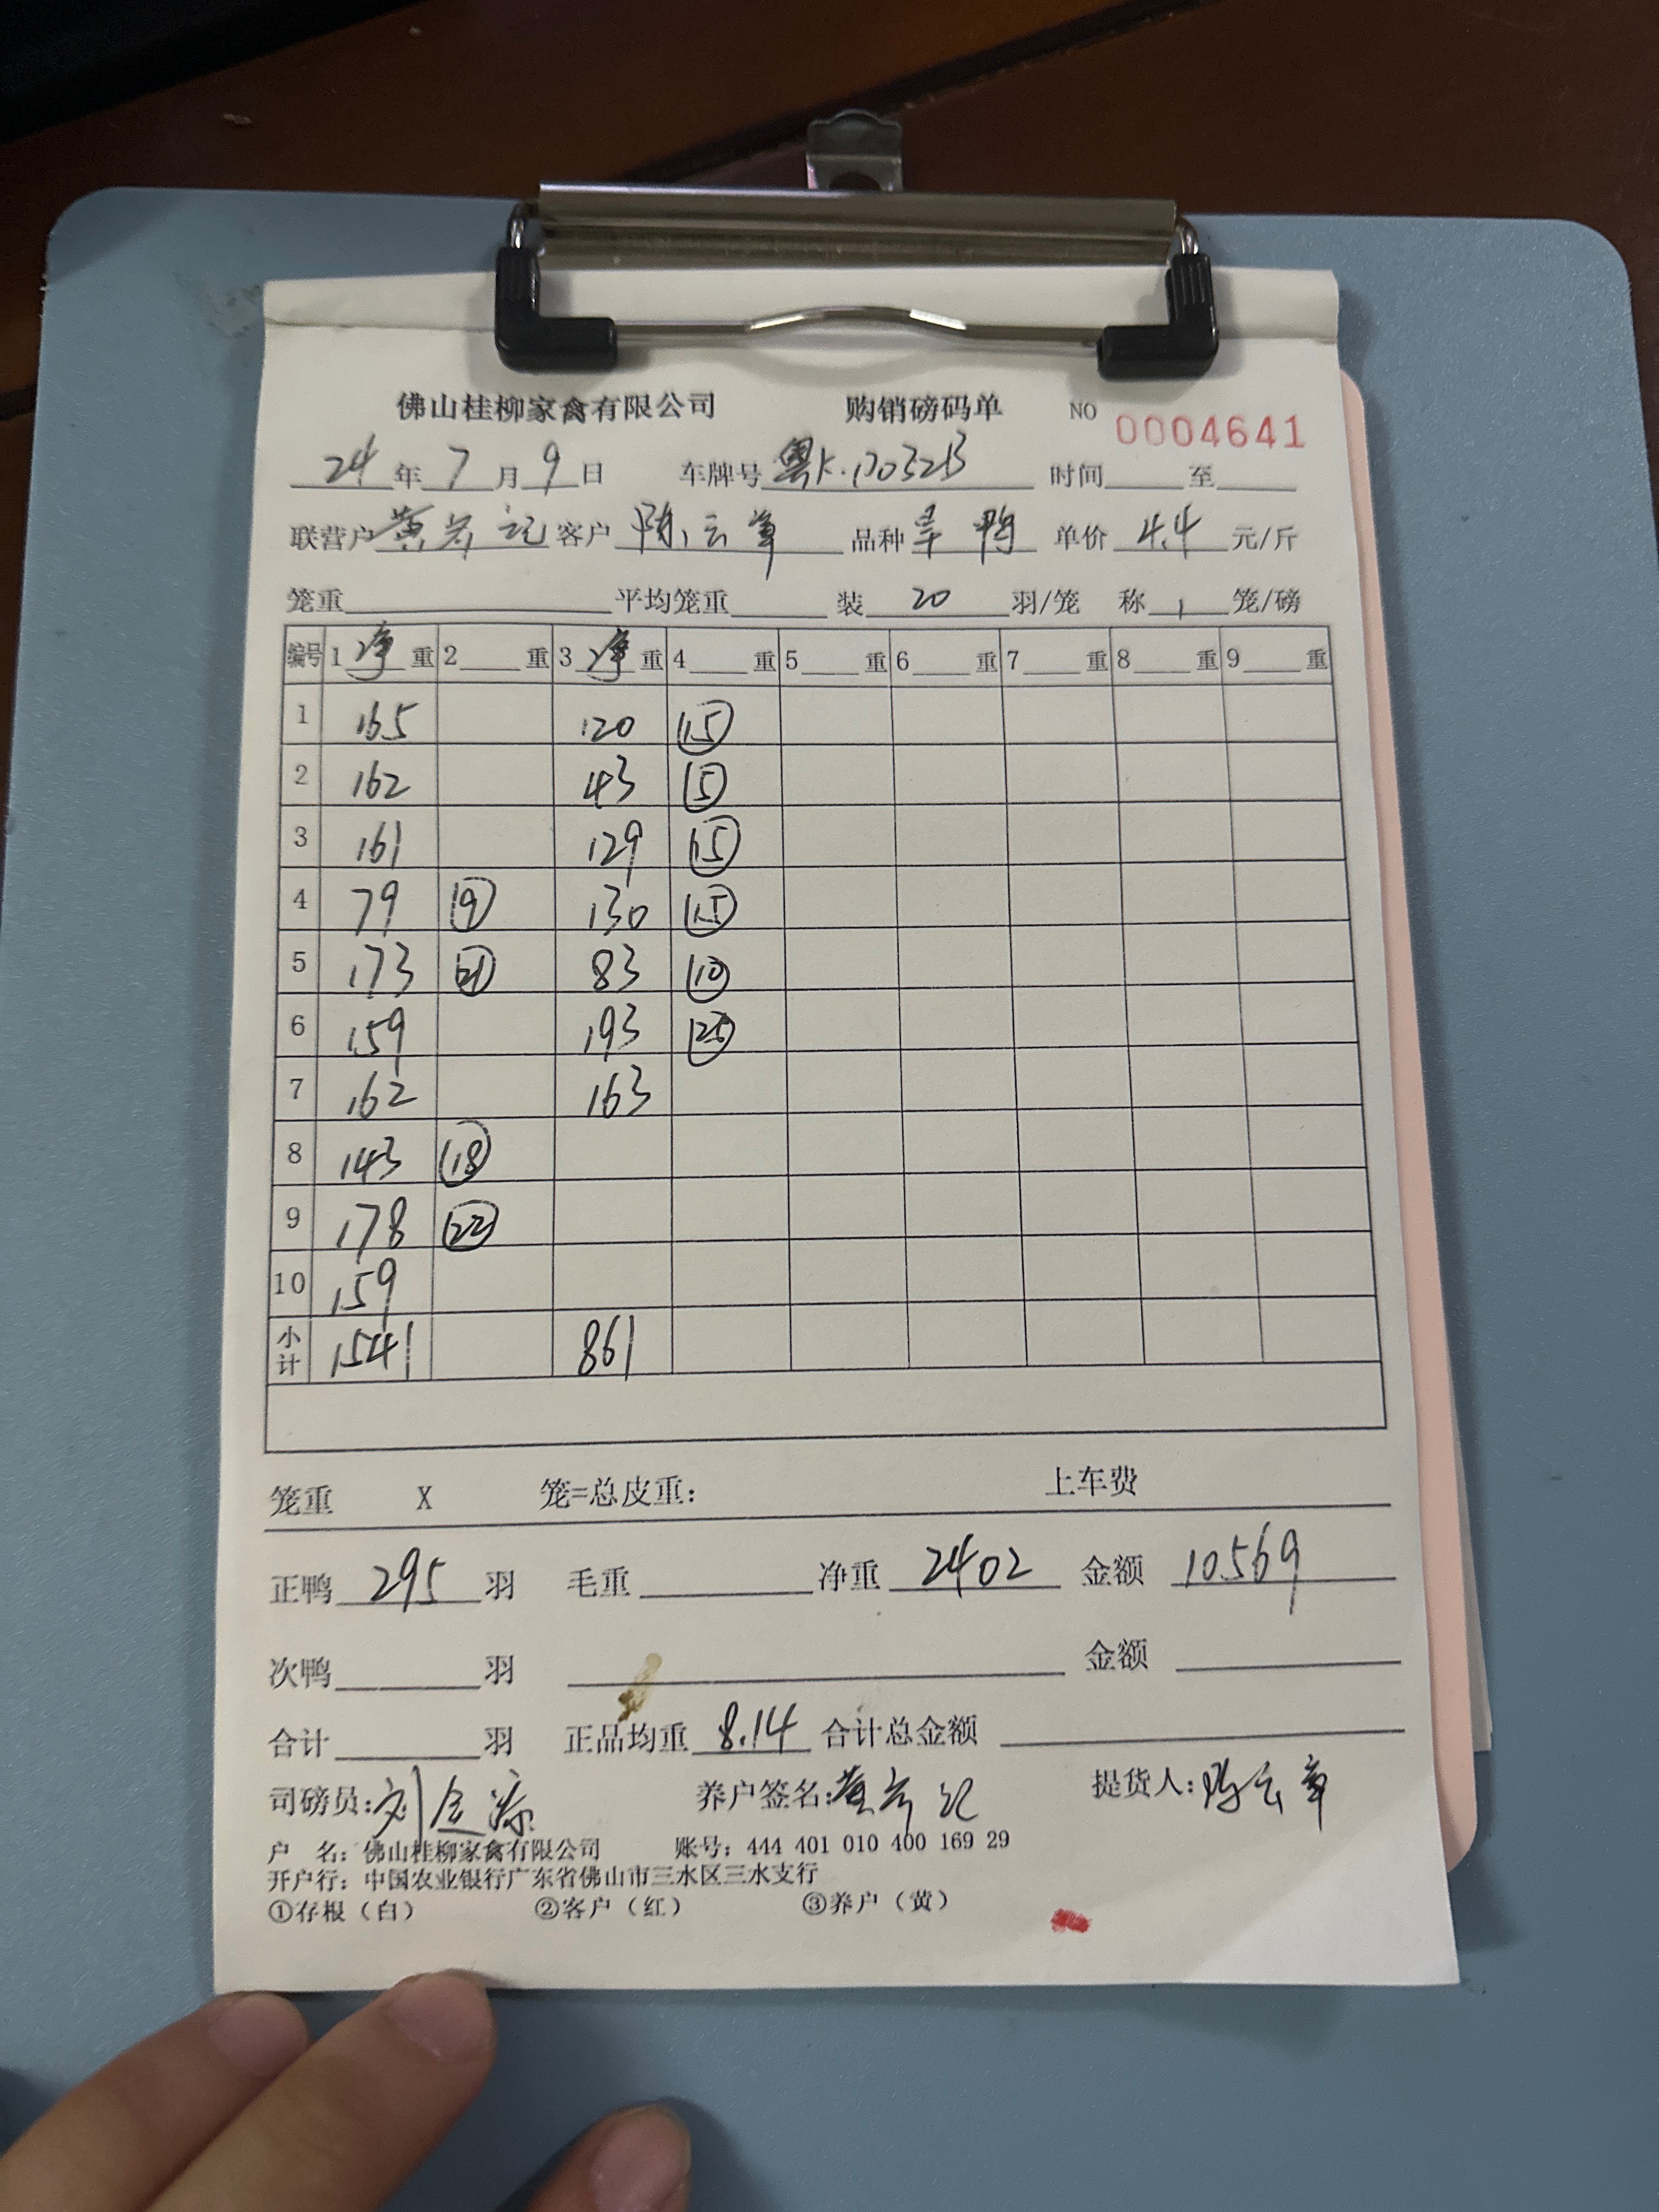 佛山桂柳家禽有限公司 购销磅码单 NO 0004641
24年7月9日 车牌号粤K·D032B 时间 至
联营户 黄 记 客户 陈云章 品种 旱鸭 单价 4.4 元/斤
笼重 平均笼重 装 20 羽/笼 称 1 笼/磅
编号 1 净 重 2 重 3 净 重 4 重 5 重 6 重 7 重 8 重 9 重
1 165 120 15
2 162 43 5
3 161 129 15
4 79 9 130 15
5 173 21 83 10
6 159 193 25
7 162 163
8 143 18
9 178 22
10 159
小计 1541 861
笼重 X 笼=总皮重: 上车费
正鸭 295 羽 毛重 净重 2402 金额 10569
次鸭 羽 金额
合计 羽 正品均重 8.14 合计总金额
司磅员:刘金源 养户签名:黄 记 提货人:陈云章
户 名: 佛山桂柳家禽有限公司 账号: 444 401 010 400 169 29
开户行: 中国农业银行广东省佛山市三水区三水支行
①存根（白） ②客户（红） ③养户（黄）